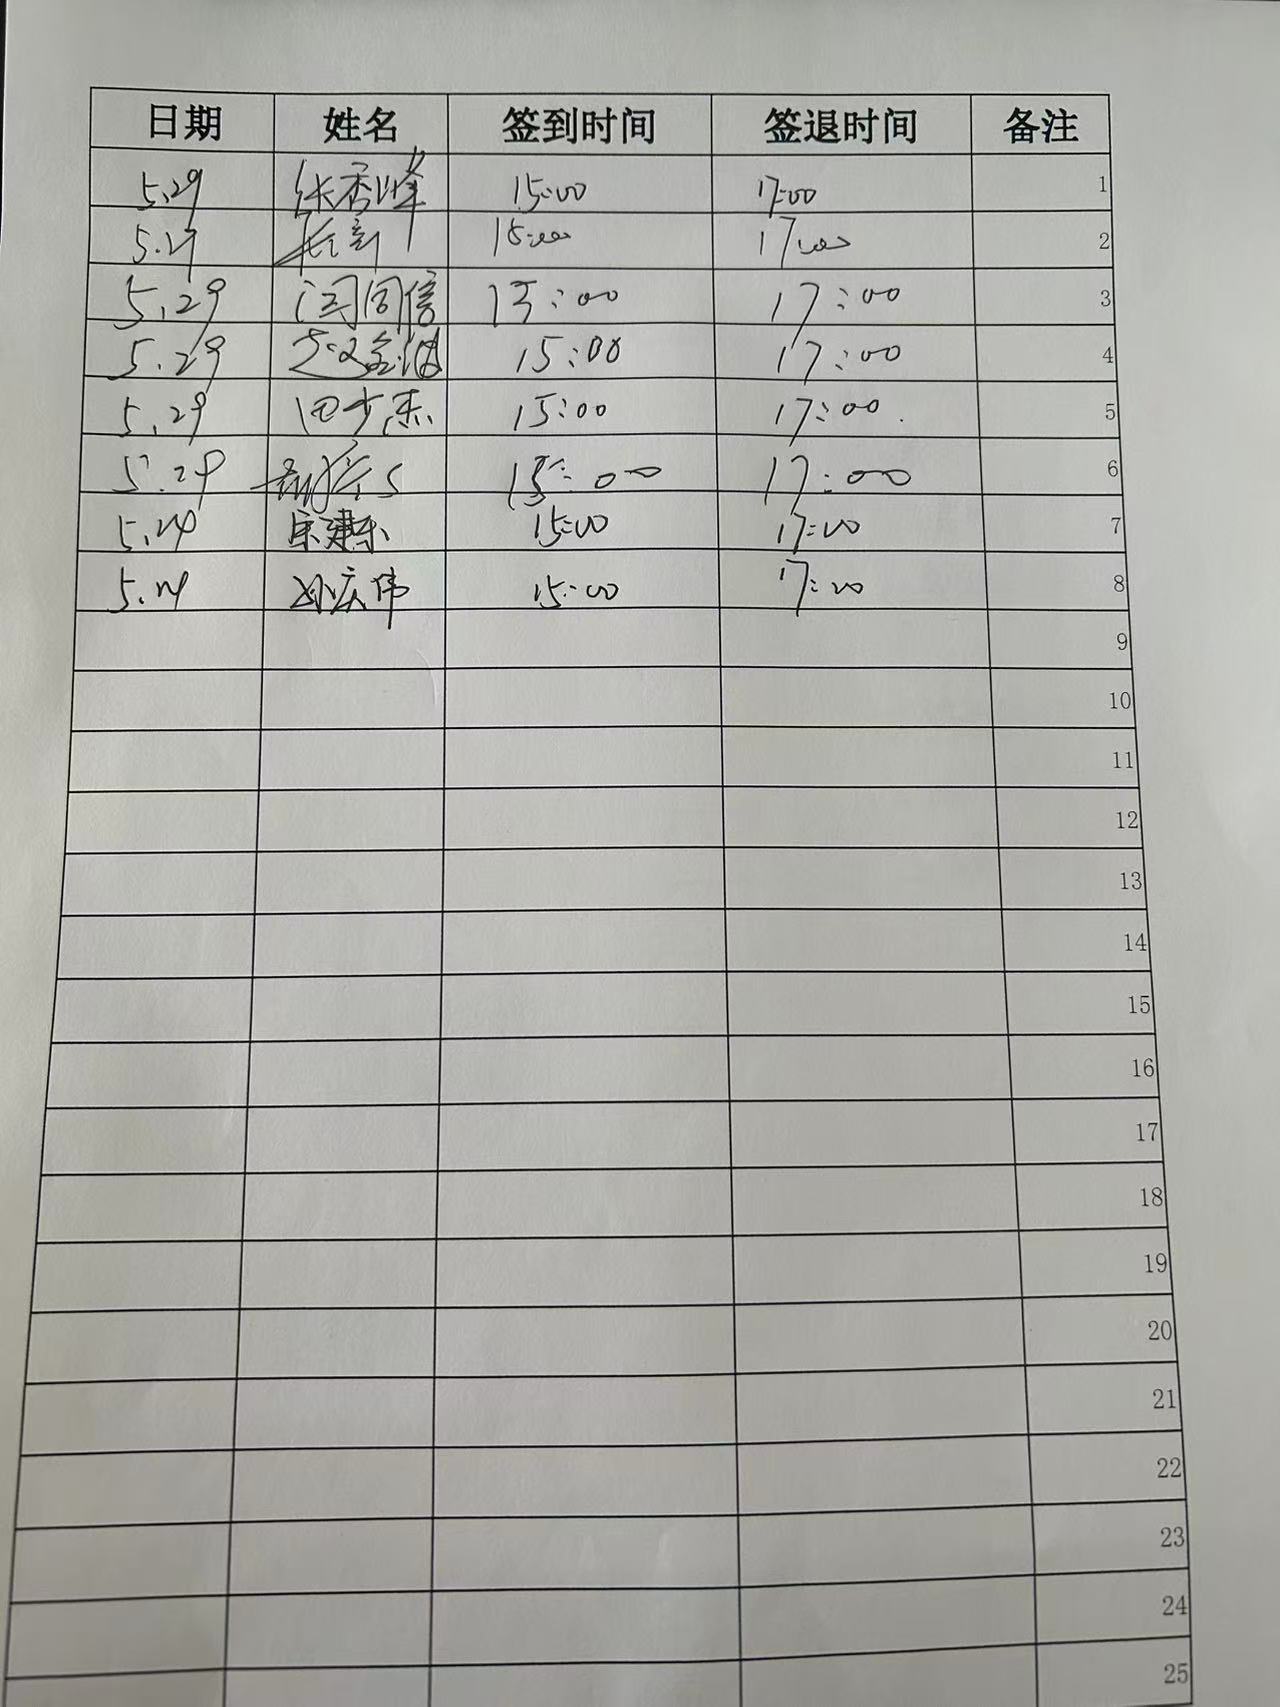 日期 姓名 签到时间 签退时间 备注
5.29 张秀峰 15:00 17:00 1
5.29 15:00 17:00 2
5.29 闫同信 15:00 17:00 3
5.29 15:00 17:00 4
5.29 田少杰 15:00 17:00 5
5.29 15:00 17:00 6
5.29 宋建东 15:00 17:00 7
5.29 孙庆伟 15:00 17:00 8
9
10
11
12
13
14
15
16
17
18
19
20
21
22
23
24
25